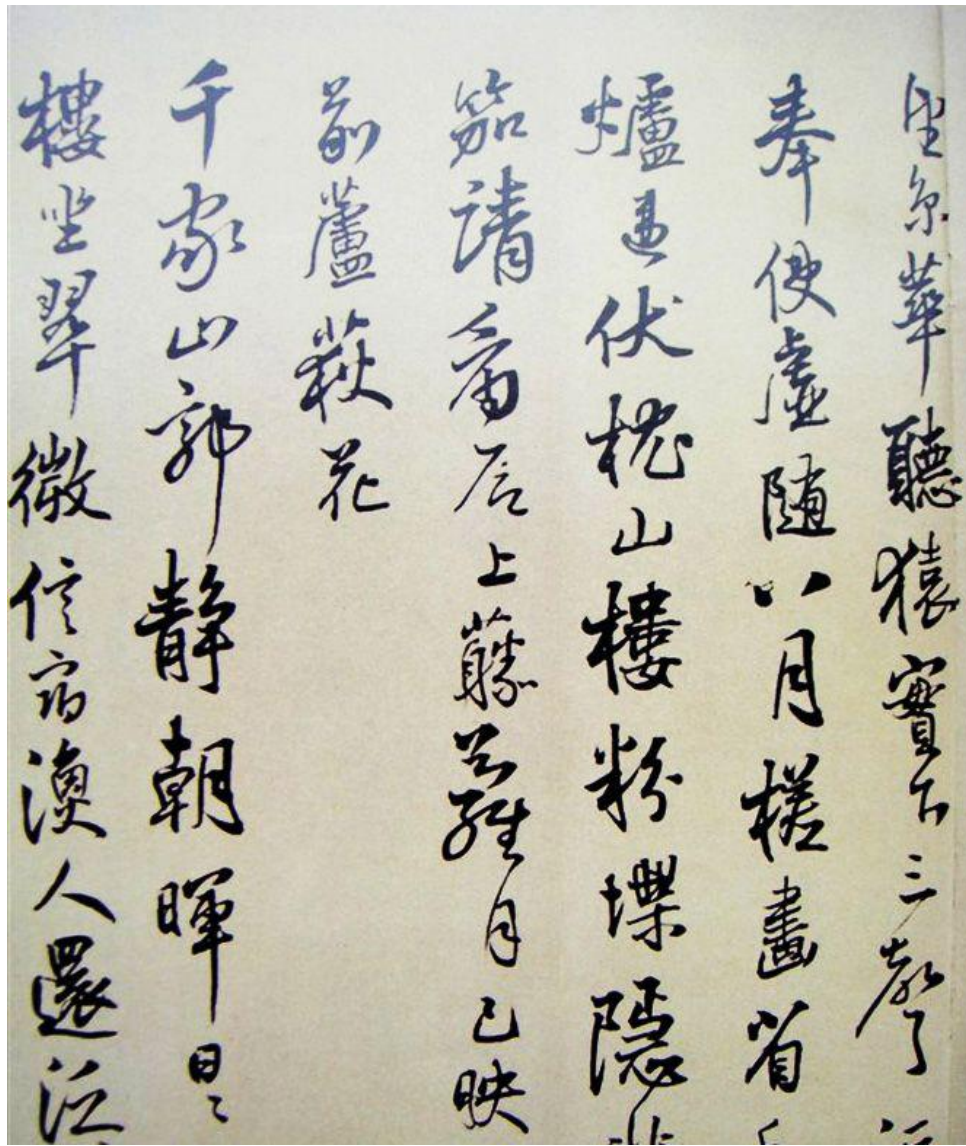 望京華聽猿實下三聲
奉使虛隨八月槎畫省
爐違伏枕山樓粉堞隱
笳請看石上藤蘿月已映
前蘆荻花
千家山郭靜朝暉日日
樓坐翠微信宿漁人還泛